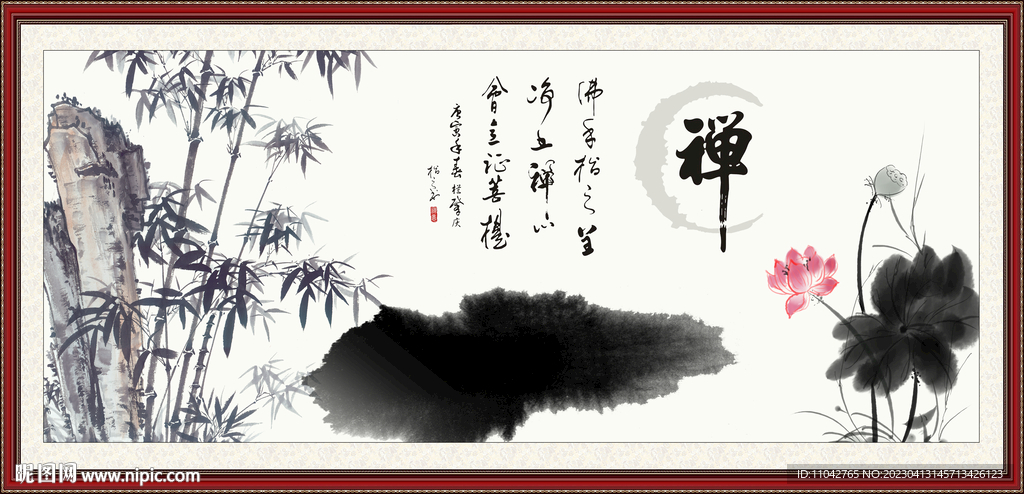 禅
佛手
净土禅心
會立证菩提
庚寅年春於肇庆
昵图网 www.nipic.com
ID:11042765 NO:20230413145713426123